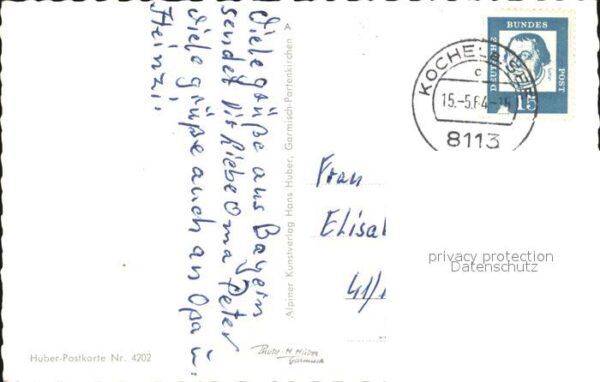 Viele grüße aus Bayern
sendet dir liebe Oma Peter
viele grüße auch an Opa u.
Heinzi
A
Alpiner Kunstverlag Hans Huber, Garmisch-Partenkirchen
Frau
Elisa
41/
DEUTSCHE
BUNDES
POST
15
KOCHEL a. SEE
c
15.-5.64-16
8113
privacy protection
Datenschutz
Huber-Postkarte Nr. 4202
Photo - H. Huber
Garmisch